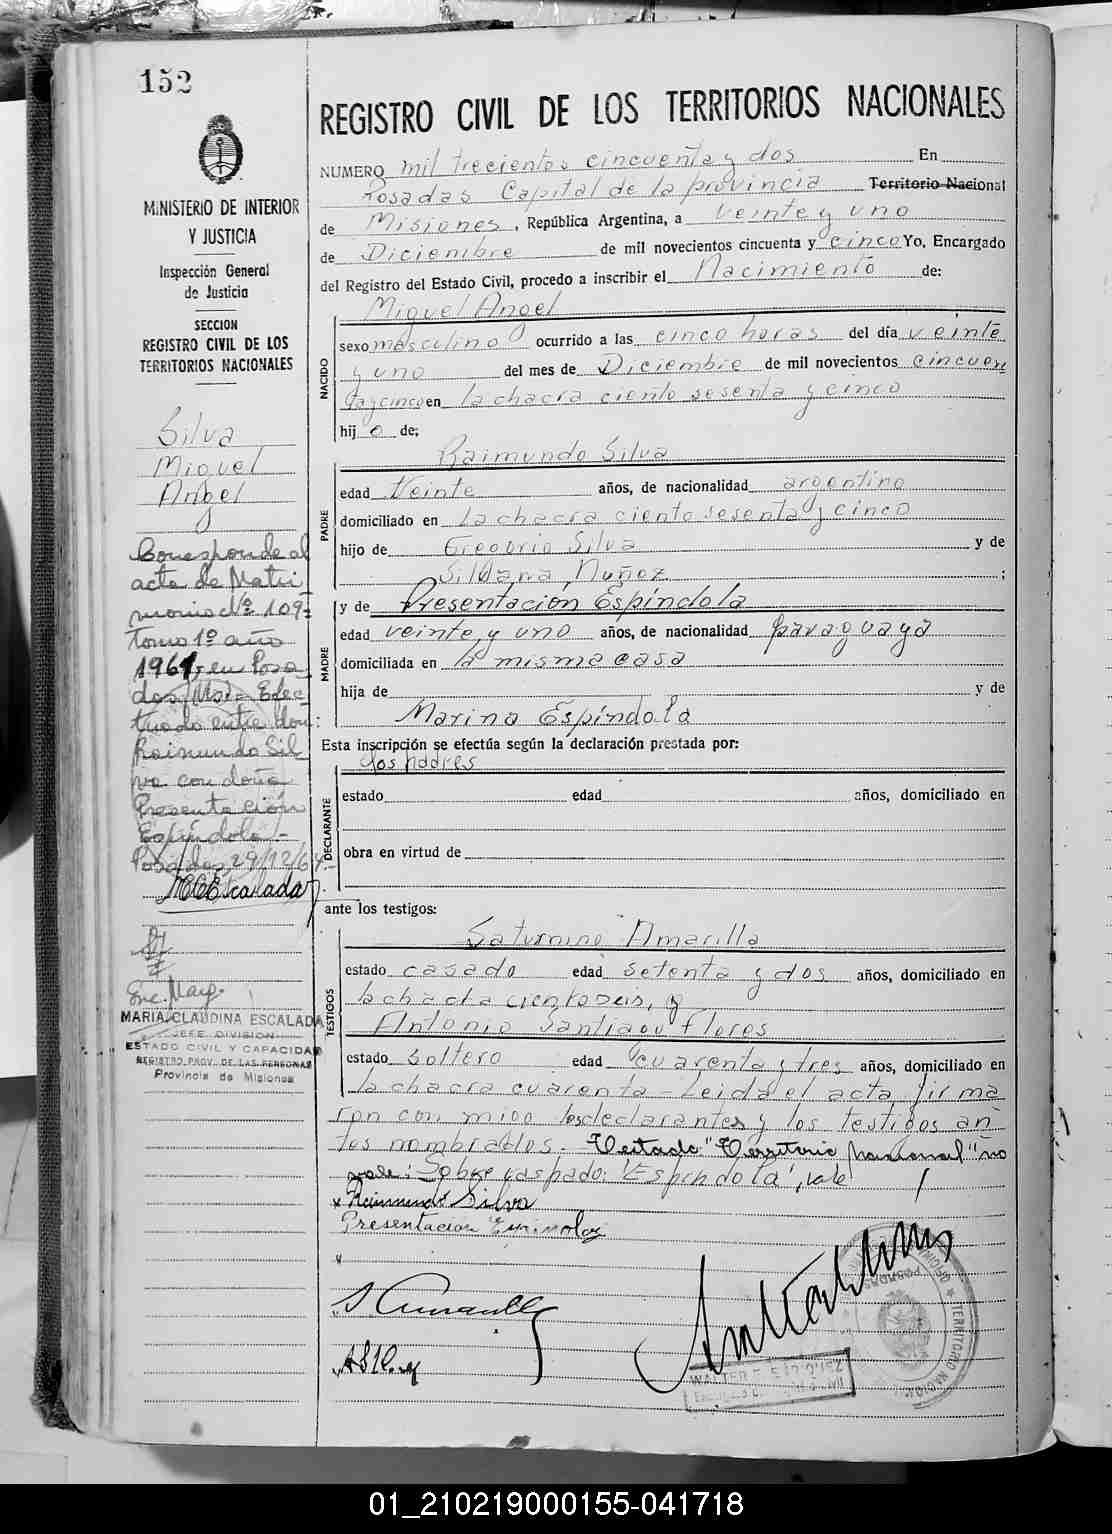 152
REGISTRO CIVIL DE LOS TERRITORIOS NACIONALES
MINISTERIO DE INTERIOR
Y JUSTICIA
Inspección General
de Justicia
SECCION
REGISTRO CIVIL DE LOS
TERRITORIOS NACIONALES
Silva
Miguel
Angel
Corresponde al
acta de Matri
monio Nº 109-
tomo 1º año
1961, en Posa
das, Mis. Efec-
tuado entre don:
Raimundo Sil
va con doña
Presentación
Espíndola.-
Posadas, 29/12/64.-
MCEscalada
Enc. May.
MARIA CLAUDINA ESCALADA
JEFE DIVISION
ESTADO CIVIL Y CAPACIDAD
REGISTRO PROV. DE LAS PERSONAS
Provincia de Misiones
NUMERO mil trecientos cincuenta y dos En
Posadas Capital de la provincia Territorio Nacional
de Misiones, República Argentina, a veinte y uno
de Diciembre de mil novecientos cincuenta y cinco Yo, Encargado
del Registro del Estado Civil, procedo a inscribir el Nacimiento de:
NACIDO
Miguel Angel
sexo masculino ocurrido a las cinco horas del día veinte
y uno del mes de Diciembre de mil novecientos cincuen
ta y cinco en la chacra ciento sesenta y cinco
hijo de:
PADRE
Raimundo Silva
edad Veinte años, de nacionalidad argentino
domiciliado en la chacra ciento sesenta y cinco
hijo de Gregorio Silva y de
Silvana Nuñez ;
MADRE
y de Presentación Espíndola
edad veinte y uno años, de nacionalidad paraguaya
domiciliada en la misma casa
hija de y de
Marina Espíndola
Esta inscripción se efectúa según la declaración prestada por:
los padres
DECLARANTE
estado edad años, domiciliado en
obra en virtud de
ante los testigos:
TESTIGOS
Saturnino Amarilla
estado casado edad setenta y dos años, domiciliado en
la chacra ciento seis, y
Antonio Santiago Flores
estado soltero edad cuarenta y tres años, domiciliado en
la chacra cuarenta - Leida el acta, firma
ron con migo los declarantes y los testigos an
tes nombrados.- Testado: "Territorio Nacional" no
vale: Sobre raspado: 'Espíndola', vale
x Raimundo Silva
Presentacion
S Amarilla
WALTER
TERRITORIO NACIONAL
POSADAS
01_210219000155-041718